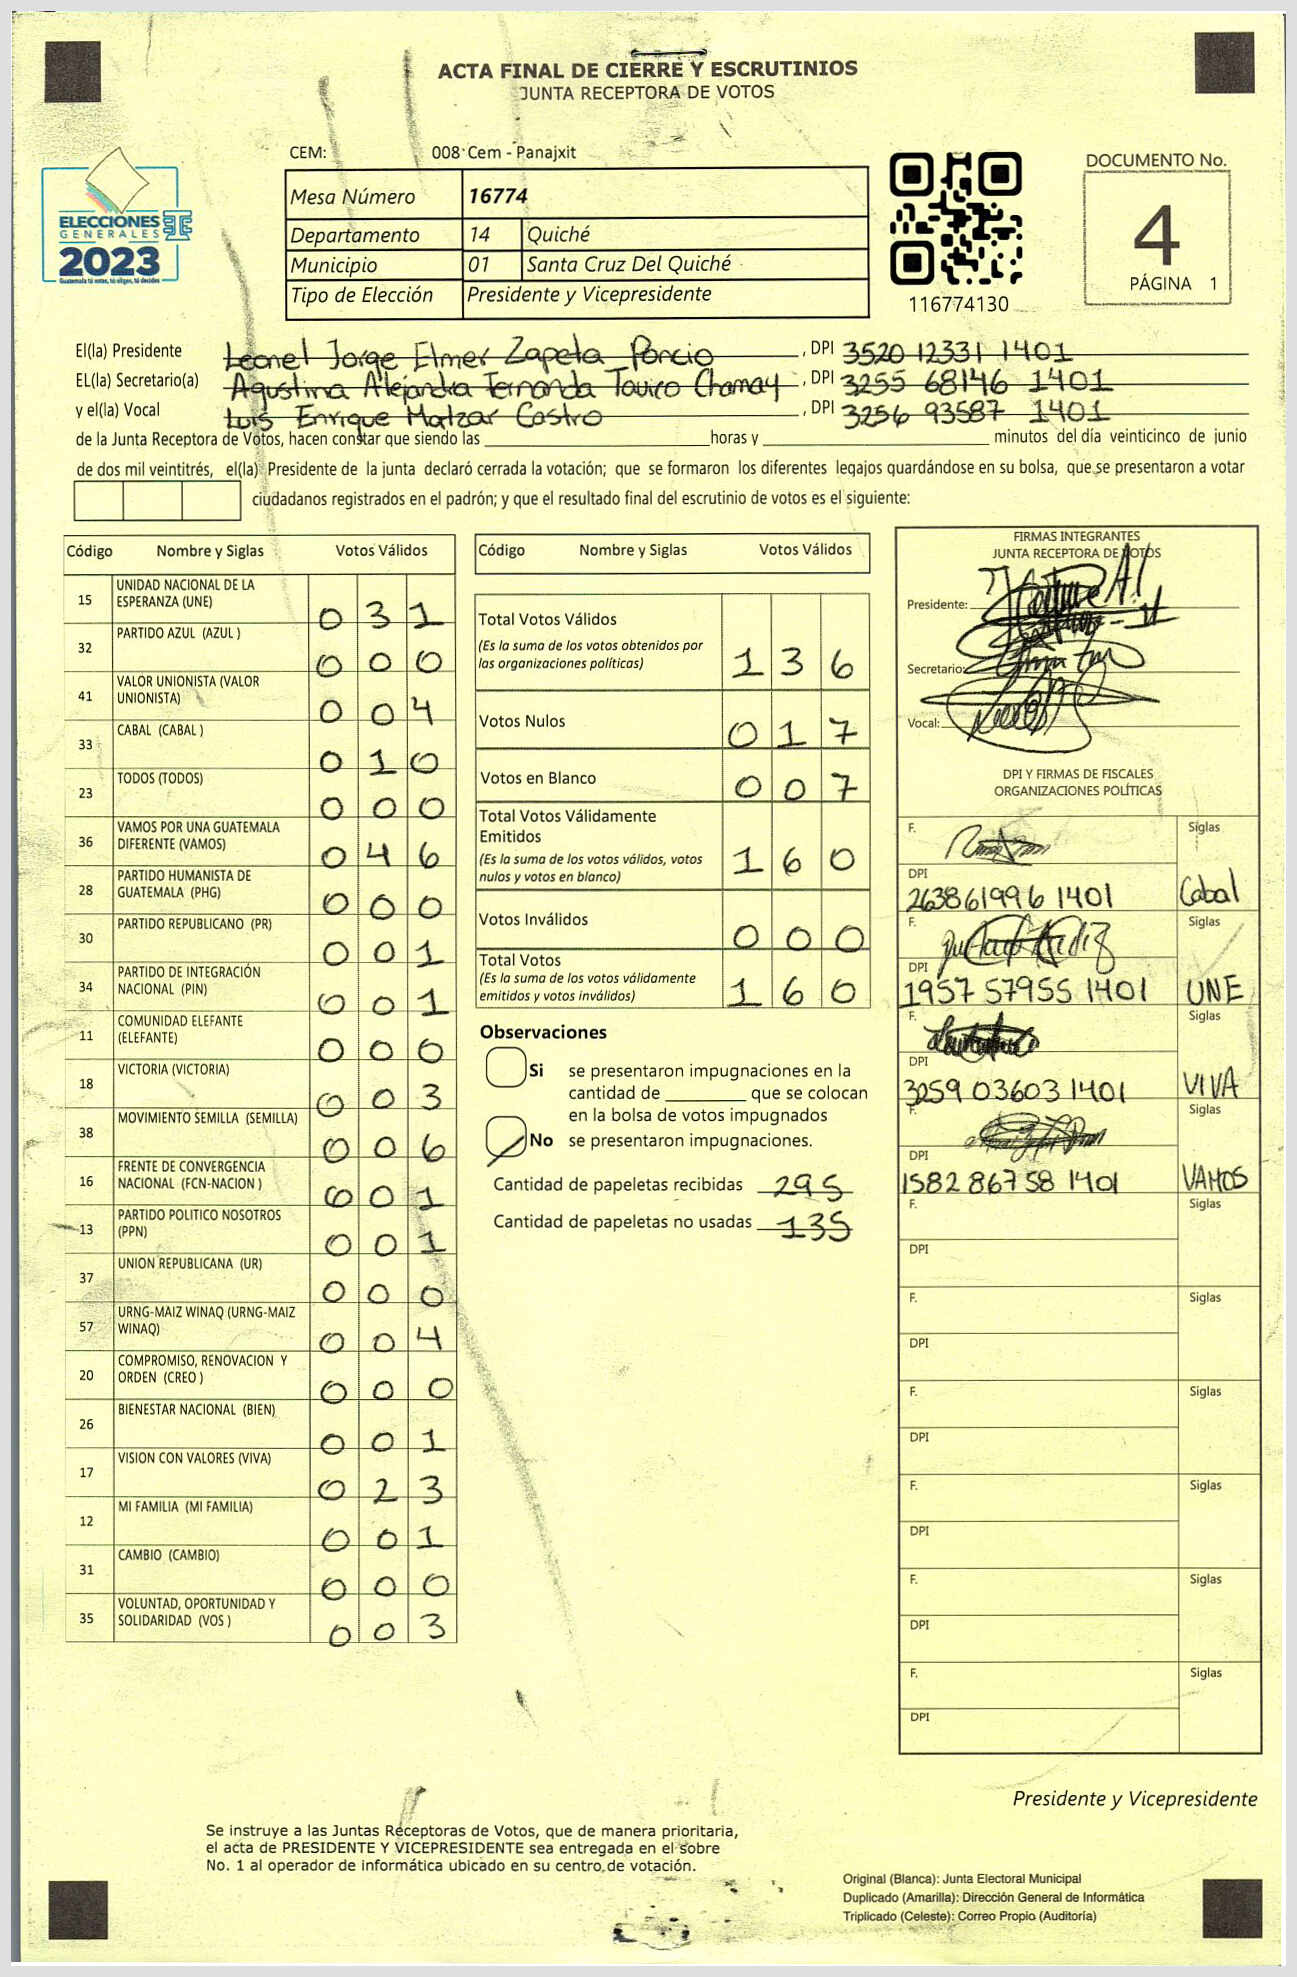 ACTA FINAL DE CIERRE Y ESCRUTINIOS
JUNTA RECEPTORA DE VOTOS
CEM: 008 Cem - Panajxit
ELECCIONES
GENERALES
2023
Guatemala tú votas, tú eliges, tú decides
Mesa Número 16774
Departamento 14 Quiché
Municipio 01 Santa Cruz Del Quiché
Tipo de Elección Presidente y Vicepresidente
116774130
DOCUMENTO No.
4
PÁGINA 1
El(la) Presidente Leonel Jorge Elmer Zapeta Poncio, DPI 3520 12331 1401
EL(la) Secretario(a) Agustina Alejandra Fernanda Tavico Chamay, DPI 3255 68146 1401
y el(la) Vocal Luis Enrique Matzar Castro, DPI 3256 93587 1401
de la Junta Receptora de Votos, hacen constar que siendo las ____ horas y ____ minutos del día veinticinco de junio
de dos mil veintitrés, el(la) Presidente de la junta declaró cerrada la votación; que se formaron los diferentes legajos quardándose en su bolsa, que se presentaron a votar
ciudadanos registrados en el padrón; y que el resultado final del escrutinio de votos es el siguiente:
Código Nombre y Siglas Votos Válidos
15 UNIDAD NACIONAL DE LA ESPERANZA (UNE) 0 3 1
32 PARTIDO AZUL (AZUL ) 0 0 0
41 VALOR UNIONISTA (VALOR UNIONISTA) 0 0 4
33 CABAL (CABAL ) 0 1 0
23 TODOS (TODOS) 0 0 0
36 VAMOS POR UNA GUATEMALA DIFERENTE (VAMOS) 0 4 6
28 PARTIDO HUMANISTA DE GUATEMALA (PHG) 0 0 0
30 PARTIDO REPUBLICANO (PR) 0 0 1
34 PARTIDO DE INTEGRACIÓN NACIONAL (PIN) 0 0 1
11 COMUNIDAD ELEFANTE (ELEFANTE) 0 0 0
18 VICTORIA (VICTORIA) 0 0 3
38 MOVIMIENTO SEMILLA (SEMILLA) 0 0 6
16 FRENTE DE CONVERGENCIA NACIONAL (FCN-NACION ) 0 0 1
13 PARTIDO POLITICO NOSOTROS (PPN) 0 0 1
37 UNION REPUBLICANA (UR) 0 0 0
57 URNG-MAIZ WINAQ (URNG-MAIZ WINAQ) 0 0 4
20 COMPROMISO, RENOVACION Y ORDEN (CREO ) 0 0 0
26 BIENESTAR NACIONAL (BIEN) 0 0 1
17 VISION CON VALORES (VIVA) 0 2 3
12 MI FAMILIA (MI FAMILIA) 0 0 1
31 CAMBIO (CAMBIO) 0 0 0
35 VOLUNTAD, OPORTUNIDAD Y SOLIDARIDAD (VOS ) 0 0 3
Código Nombre y Siglas Votos Válidos
Total Votos Válidos 1 3 6
(Es la suma de los votos obtenidos por
las organizaciones políticas)
Votos Nulos 0 1 7
Votos en Blanco 0 0 7
Total Votos Válidamente
Emitidos 1 6 0
(Es la suma de los votos válidos, votos
nulos y votos en blanco)
Votos Inválidos 0 0 0
Total Votos 1 6 0
(Es la suma de los votos válidamente
emitidos y votos inválidos)
Observaciones
Si se presentaron impugnaciones en la
cantidad de ____ que se colocan
en la bolsa de votos impugnados
No se presentaron impugnaciones.
Cantidad de papeletas recibidas 295
Cantidad de papeletas no usadas 135
FIRMAS INTEGRANTES
JUNTA RECEPTORA DE VOTOS
Presidente:
Secretario:
Vocal:
DPI Y FIRMAS DE FISCALES
ORGANIZACIONES POLÍTICAS
F. Siglas
DPI
263861996 1401 Cabal
F. Siglas
DPI
1957 57955 1401 UNE
F. Siglas
DPI
3259 03603 1401 VIVA
F. Siglas
DPI
1582 86758 1401 VAMOS
F. Siglas
DPI
F. Siglas
DPI
F. Siglas
DPI
F. Siglas
DPI
F. Siglas
DPI
F. Siglas
DPI
Presidente y Vicepresidente
Se instruye a las Juntas Receptoras de Votos, que de manera prioritaria,
el acta de PRESIDENTE Y VICEPRESIDENTE sea entregada en el sobre
No. 1 al operador de informática ubicado en su centro de votación.
Original (Blanca): Junta Electoral Municipal
Duplicado (Amarilla): Dirección General de Informática
Triplicado (Celeste): Correo Propio (Auditoría)